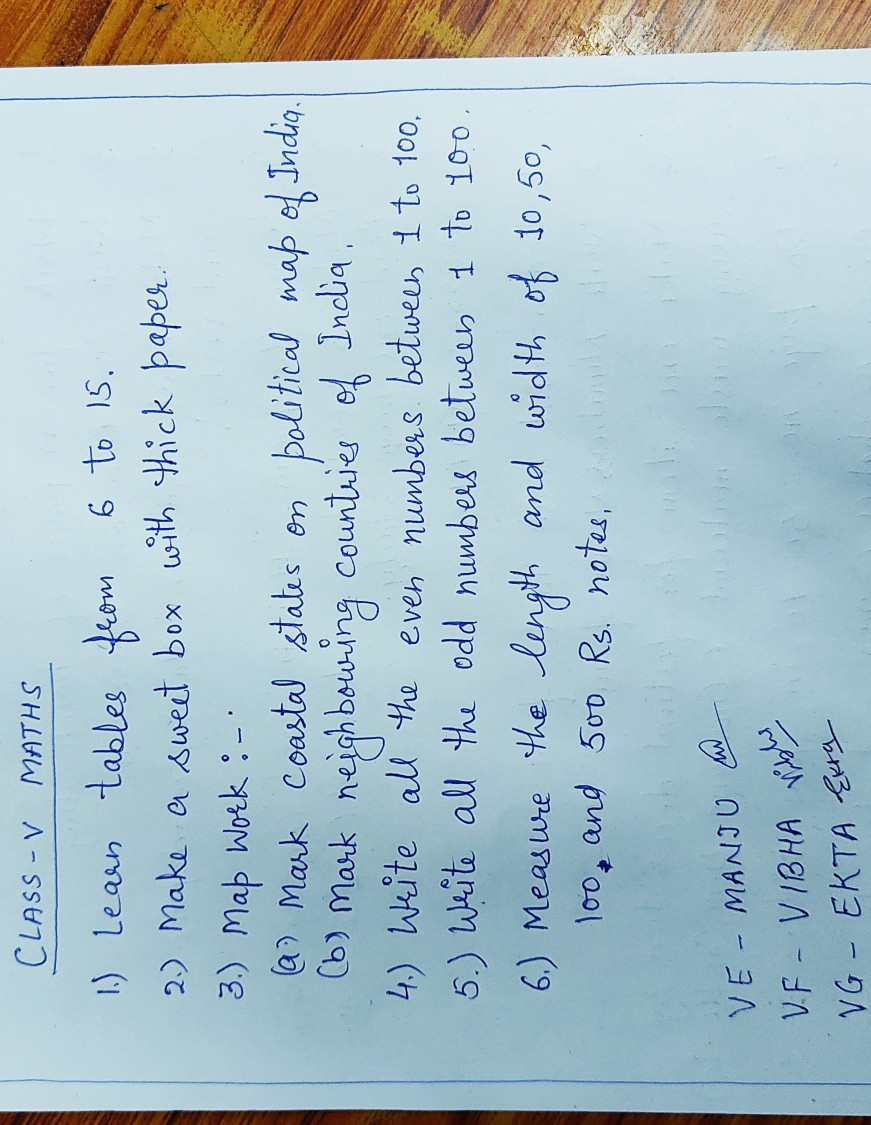 CLASS-V MATHS
1.) Learn tables from 6 to 15.
2.) Make a sweet box with thick paper.
3.) Map Work :-
(a) Mark coastal states on political map of India.
(b) Mark neighbouring countries of India.
4.) Write all the even numbers between 1 to 100.
5.) Write all the odd numbers between 1 to 100.
6.) Measure the length and width of 10, 50,
100, and 500 Rs. notes.
VE - MANJU
V.F - VIBHA Vibha
VG - EKTA Ekta